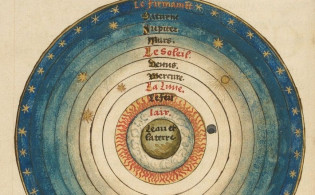 Le firmament
Saturne
Jupiter
Mars.
Le Soleil.
Venus.
Mercure.
La Lune.
Le feu
Lair.
Leau et
la terre.